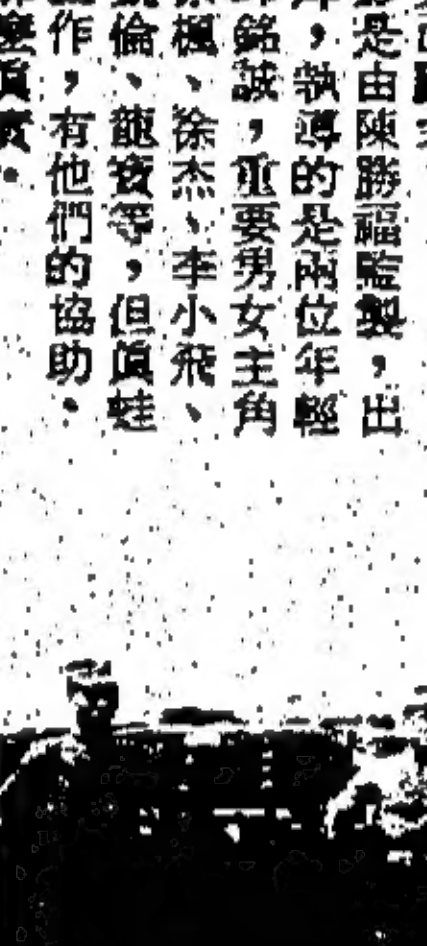 是由陳勝福監製，出
，執導的是兩位年輕
銘誠，重要男女主角
楓、徐杰、李小飛、
倫、龍寶等，但眞蛙
作，有他們的協助。